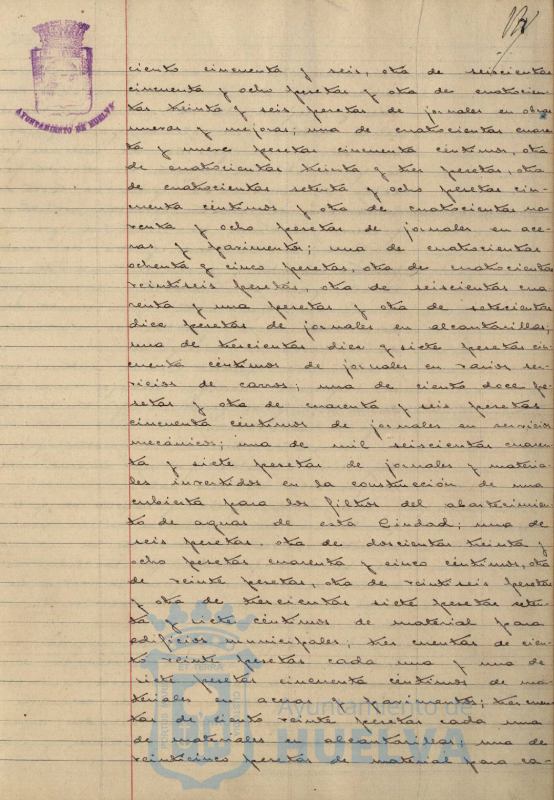 AYUNTAMIENTO DE HUELVA
ciento cincuenta y seis, otra de seiscientas
cincuenta y ocho pesetas y otra de cuatrocien-
tas treinta y seis pesetas de jornales en obras
nuevas y mejoras; una de cuatrocientas cuaren-
ta y nueve pesetas cincuenta céntimos, otra
de cuatrocientas treinta y tres pesetas, otra
de cuatrocientas setenta y ocho pesetas cin-
cuenta céntimos y otra de cuatrocientas no-
venta y ocho pesetas de jornales en ace-
ras y pavimentos; una de cuatrocientas
ochenta y cinco pesetas, otra de cuatrocientas
veintiseis pesetas, otra de seiscientas cua-
renta y una pesetas y otra de setecientas
diez pesetas de jornales en alcantarillas;
una de trescientas diez y siete pesetas cin-
cuenta céntimos de jornales en varios ser-
vicios de carros; una de ciento doce pe-
setas y otra de cuarenta y seis pesetas
cincuenta céntimos de jornales en servicios
mecánicos; una de mil seiscientas cuaren-
ta y siete pesetas de jornales y materia-
les invertidos en la construcción de una
cubierta para los filtros del abastecimien-
to de aguas de esta Ciudad; una de
seis pesetas, otra de doscientas treinta y
ocho pesetas cuarenta y cinco céntimos, otra
de veinte pesetas, otra de veintiseis pesetas
y otra de trescientas siete pesetas seten-
ta y siete céntimos de material para
edificios municipales; tres cuentas de cien-
to veinte pesetas cada una y una de
siete pesetas cincuenta céntimos de ma-
teriales en aceras y pavimento; tres cuen-
tas de ciento veinte pesetas cada una
de materiales en alcantarillas; una de
veinticinco pesetas de material para ca-
Ayuntamiento de
HUELVA